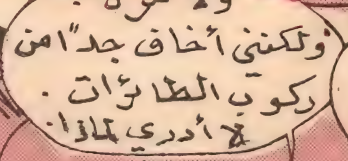 ولكنني أخاف جداً من
ركوب الطائرات .
لا أدري لماذا.